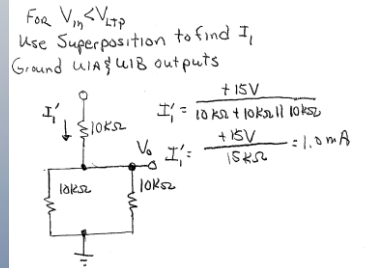 FOR Vin<VLTP
Use Superposition to find I1
Ground U1A & U1B outputs
I1'
10KΩ
I1' = +15V / 10KΩ + 10KΩ || 10KΩ
Vo
I1' = +15V / 15KΩ = 1.0mA
10KΩ
10KΩ